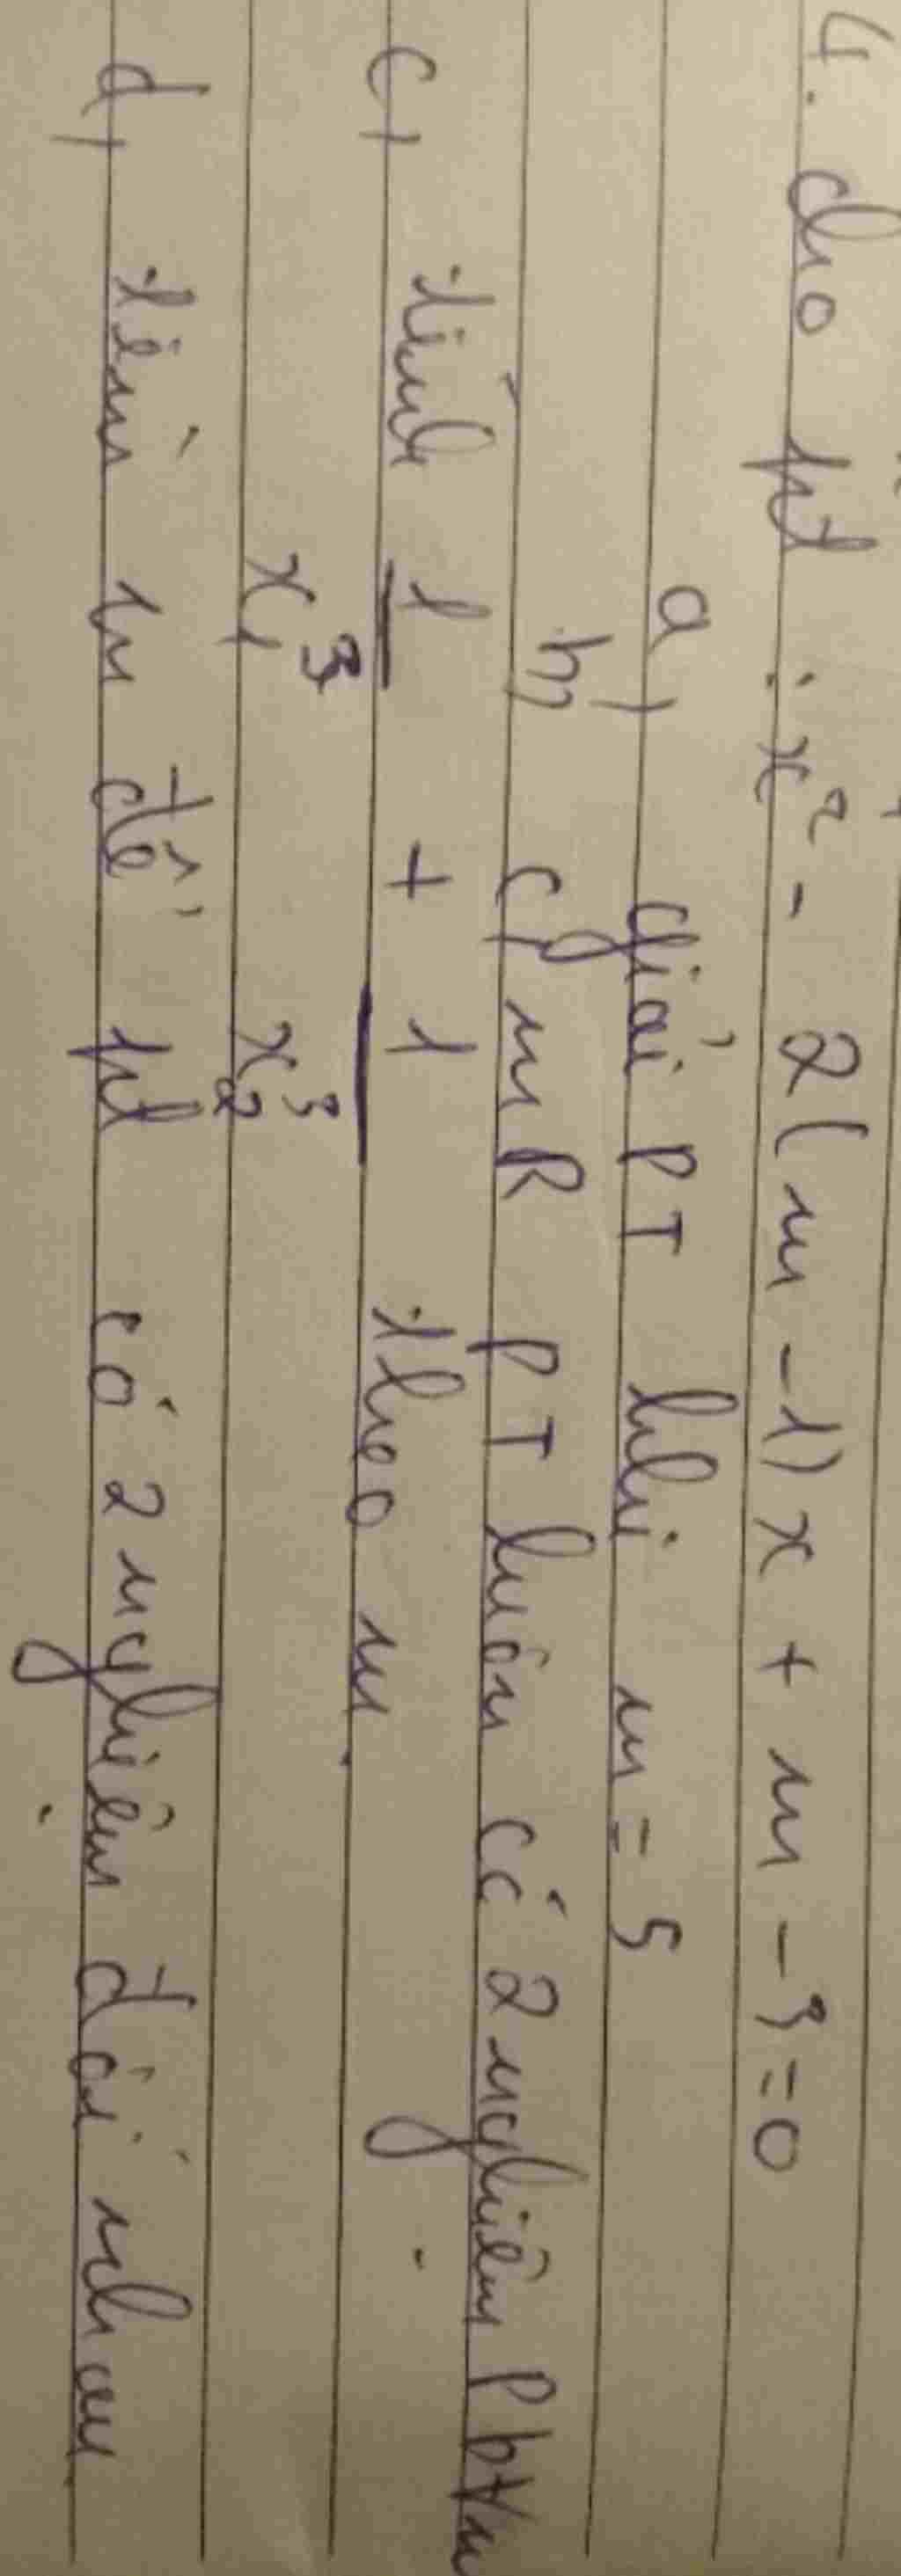 4. cho pt : x² - 2(m-1)x + m - 3 = 0
a, giải PT khi m = 5
b, CMR PT luôn có 2 nghiệm Pb ∀m
c, tính 1/x₁³ + 1/x₂³ theo m.
d, tìm m để pt có 2 nghiệm đối nhau